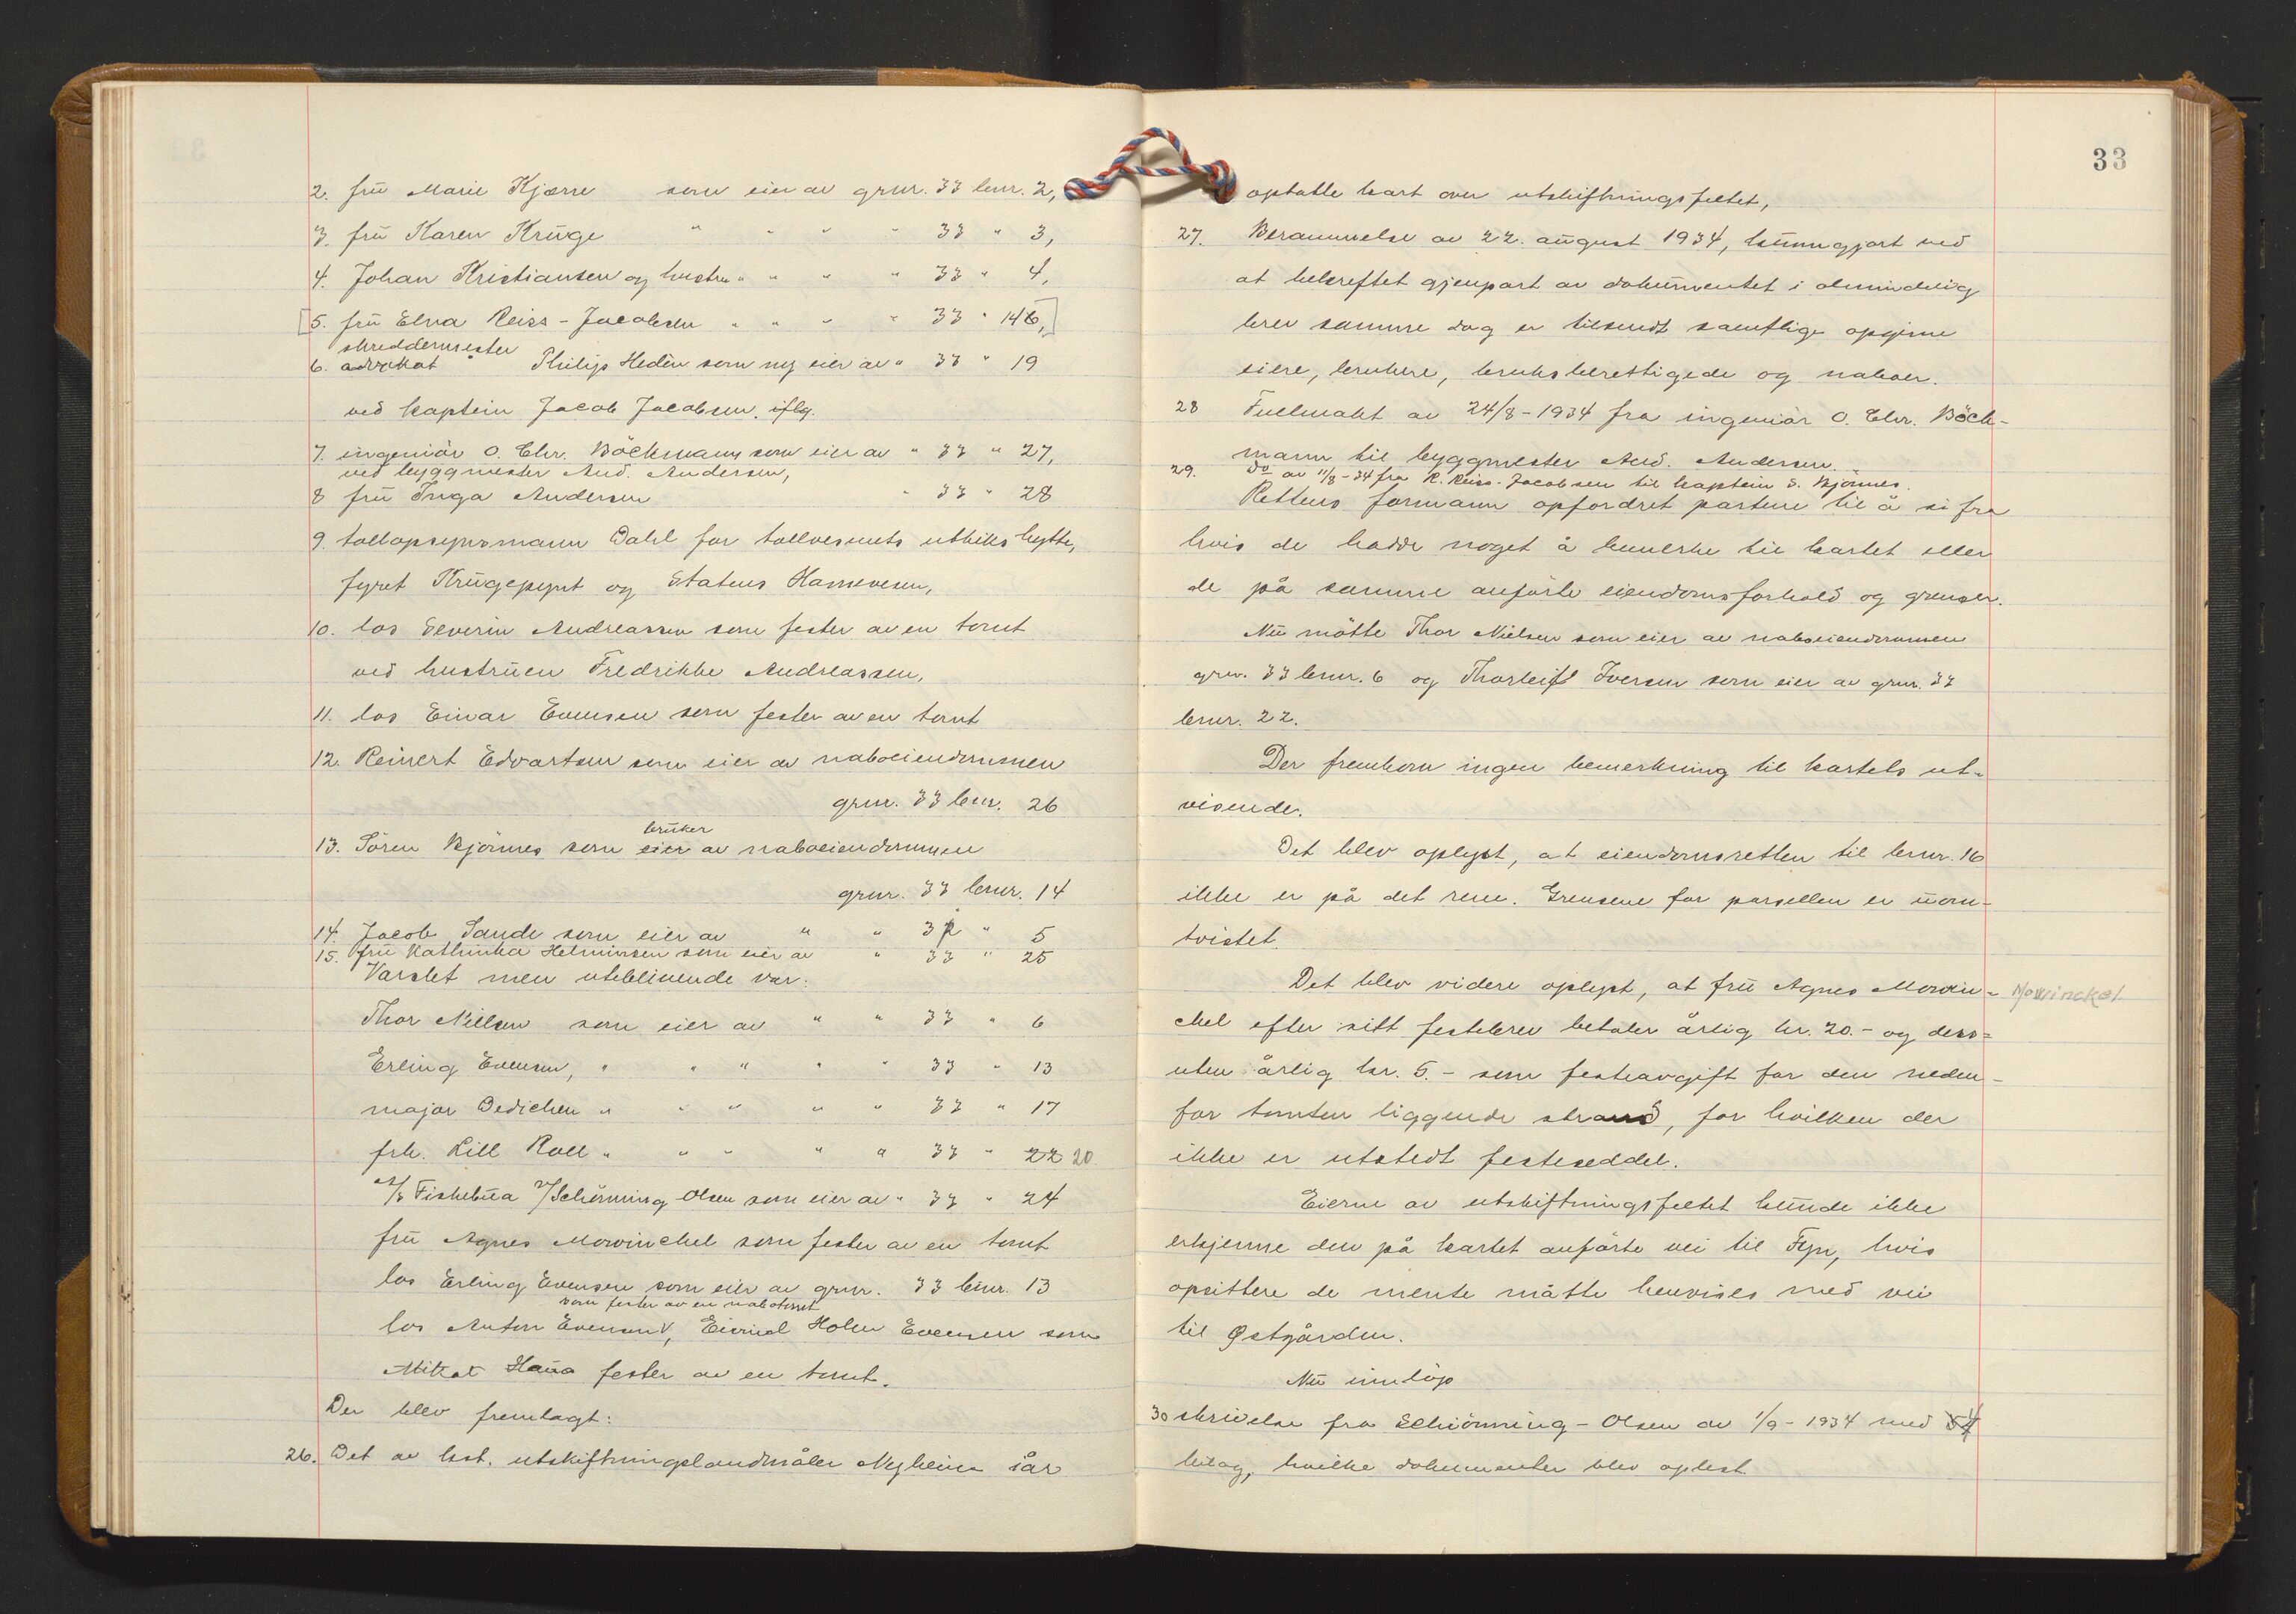 2. frü Marie Kjærre som eier av grnr. 33 bnr. 2,
3. frü Karen Krüge " " " " 33 " 3,
4. Johan Kristiansen og hustru " " " " 33 " 4,
[5. frü Elna Reiss-Jacobsen " " " " 33 " 16,]
skreddermester
6. advokat Philip Hedèn som ny eier av " 33 " 19
ved kaptein Jacob Jacobsen. iflg.
7. ingeniør O. Chr. Böckmann som eier av " 33 " 27,
ved byggmester And. Andersen,
8 frü Inga Andersen " 33 " 28
9. tollopsynsmann Dahl for tollvesenets utkiks hytte,
fyret Krügepynt og Statens Havnevesen,
10. los Severin Andreassen som fester av en tomt
ved hustrüen Fredrikke Andreassen,
11. los Einar Evensen som fester av en tomt
12. Reinert Edvartsen som eier av naboeiendommen
grnr. 33 bnr. 26
brüker
13. Sören Björnnes som eier av naboeiendommen
grnr. 33 bnr. 14
14. Jacob Sande som eier av " " 32 " 5
15. frü Kathinka Helminsen som eier av " 33 " 25
Varslet men uteblivende var:
Thor Nielsen som eier av " " 33 " 6
Erling Evensen, " " " " " 33 " 13
major Dedichen " " " " " 33 " 17
frk. Lill Roll " " " " " 33 " 22 20
A/S Fiskebüa v/Schönning Olsen som eier av " 33 " 24
frü Agnes Mowinckel som fester av en tomt
los Erling Evensen som eier av grnr. 33 bnr. 13
som fester av en nabotomt
los Anton Evensen V, Eivind Holm Evensen som
fester av en tomt.
Der blev fremlagt:
26. Det av kst. utskiftningslandmåler Nyheim iår
33
optatte kart over utskiftningsfeltet,
27. Berammelse av 22. aügust 1934, künngjort ved
at bekreftet gjenpart av dokümentet i almindelig
brev samme dag er tilsendt samtlige opgivne
eiere, brukere, bruksberettigede og naboer.
28 Fullmakt av 24/8-1934 fra ingeniør O. Chr. Böck-
mann til byggmester And. Andersen.
29. do av 11/8-34 fra R. Reiss-Jacobsen til kaptein S. Björnnes.
Rettens formann opfordret partene til å si fra
hvis de hadde noget å bemerke til kartet eller
de på samme anførte eiendomsforhold og grenser.
Nü møtte Thor Nielsen som eier av naboeiendommen
grnr. 33 bnr. 6 og Thorleif Iversen som eier av grnr. 33
bnr. 22.
Der fremkom ingen bemerkning til kartets ut-
visende.
Det blev oplyst, at eiendomsretten til bnr. 16
ikke er på det rene. Grensene for parsellen er üom-
tvistet.
Det blev videre oplyst, at frü Agnes Mowin- Mowinckel
ckel efter sitt festebrev betaler årlig kr. 20.- og dess-
uten årlig kr. 5.- som festeavgift for den neden-
for tomten liggende strand, for hvilken der
ikke er utstedt festeseddel.
Eierne av utskiftningsfeltet künde ikke
erkjenne den på kartet anførte vei til Fyn, hvis
opsittere de mente måtte henvises med vei
til Østgården.
Nü innløp
30 skrivelse fra Schiønning-Olsen av 1/9-1934 med 4
bilag, hvilke dokumenter blev oplest.